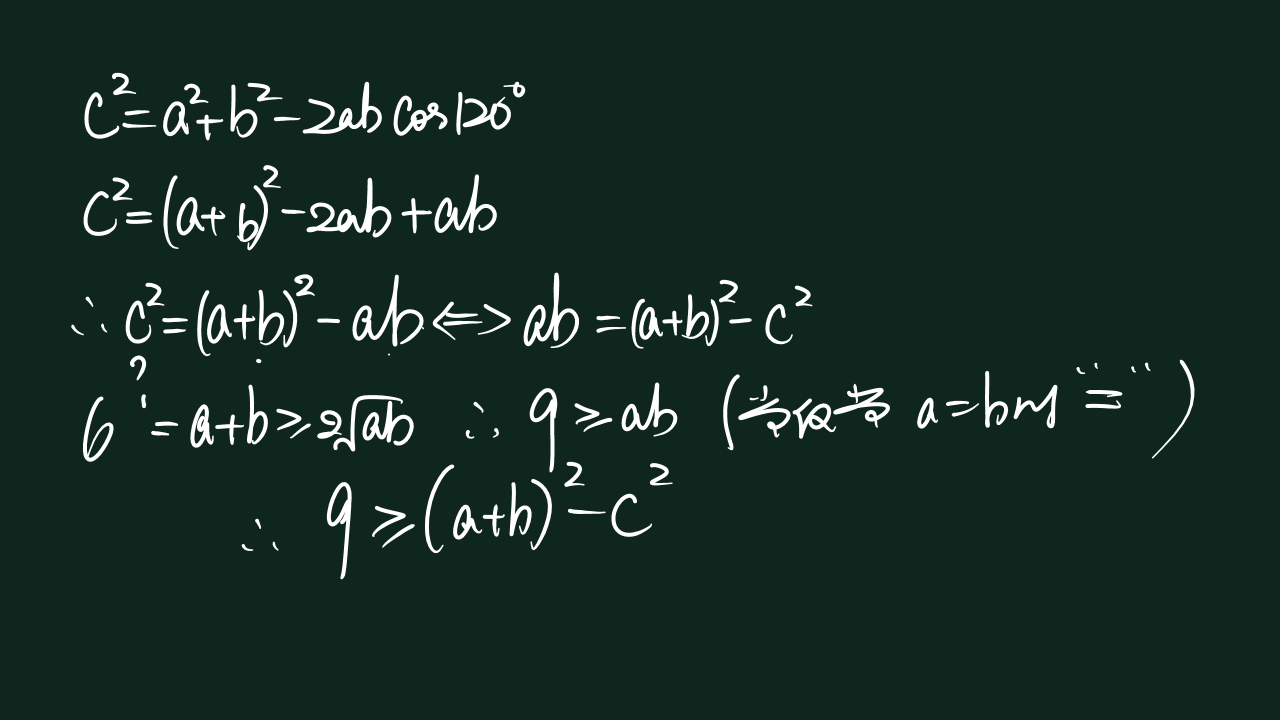 c²=a²+b²-2ab cos120°
c²=(a+b)²-2ab+ab
∴ c²=(a+b)²-ab⇔ab=(a+b)²-c²
6=a+b≥2√ab ∴ 9≥ab (当仅当 a=b时"=")
∴ 9≥(a+b)²-c²